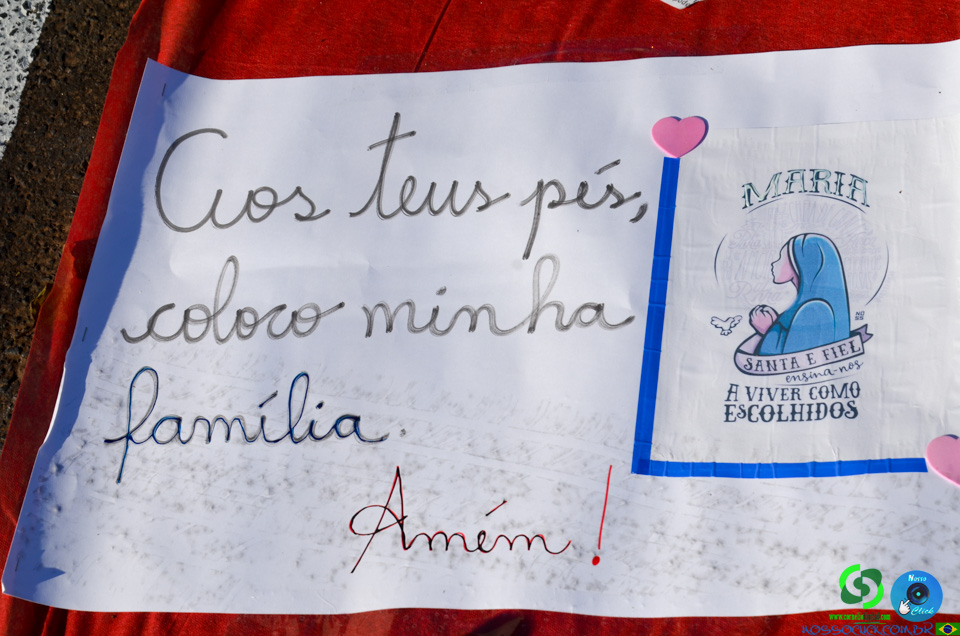 Aos teus pés,
coloco minha
família.
Amém!
MARIA
SANTA E FIEL
ensina-nos
A VIVER COMO
ESCOLHIDOS
Nosso
Click